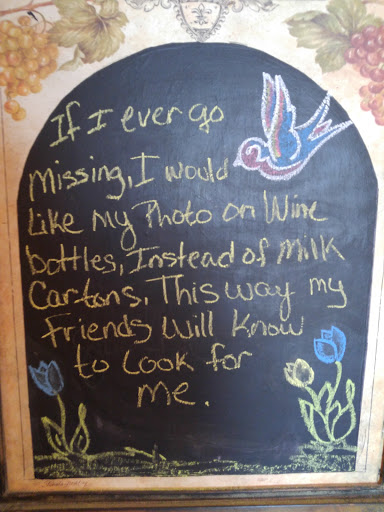 If I ever go
missing, I would
like my Photo on Wine
bottles, Instead of milk
Cartons. This way my
friends will know
to look for
me.